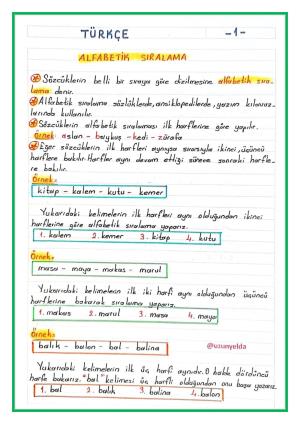 TÜRKÇE -1-
ALFABETİK SIRALAMA
Sözcüklerin belli bir sıraya göre dizilmesine alfabetik sıra-
lama denir.
Alfabetik sıralama sözlüklerde, ansiklopedilerde, yazım kılavuz-
larında kullanılır.
Sözcüklerin alfabetik sıralaması ilk harflerine göre yapılır.
Örnek: aslan - baykuş - kedi - zürafa
Eğer sözcüklerin ilk harfleri aynıysa sırasıyla ikinci, üçüncü
harflere bakılır. Harfler aynı devam ettiği sürece sonraki harfle-
re bakılır.
Örnek:
kitap - kalem - kutu - kemer
Yukarıdaki kelimelerin ilk harfleri aynı olduğundan ikinci
harflerine göre alfabetik sıralama yaparız.
1. kalem 2. kemer 3. kitap 4. kutu
Örnek:
masa - maya - makas - marul
Yukarıdaki kelimelerin ilk iki harfi aynı olduğundan üçüncü
harflerine bakarak sıralama yaparız.
1. makas 2. marul 3. masa 4. maya
Örnek:
balık - balon - bal - balina
@uzunyelda
Yukarıdaki kelimelerin ilk üç harfi aynıdır. O halde dördüncü
harfe bakarız. "bal" kelimesi üç harfli olduğundan onu başa yazarız.
1. bal 2. balık 3. balina 4. balon